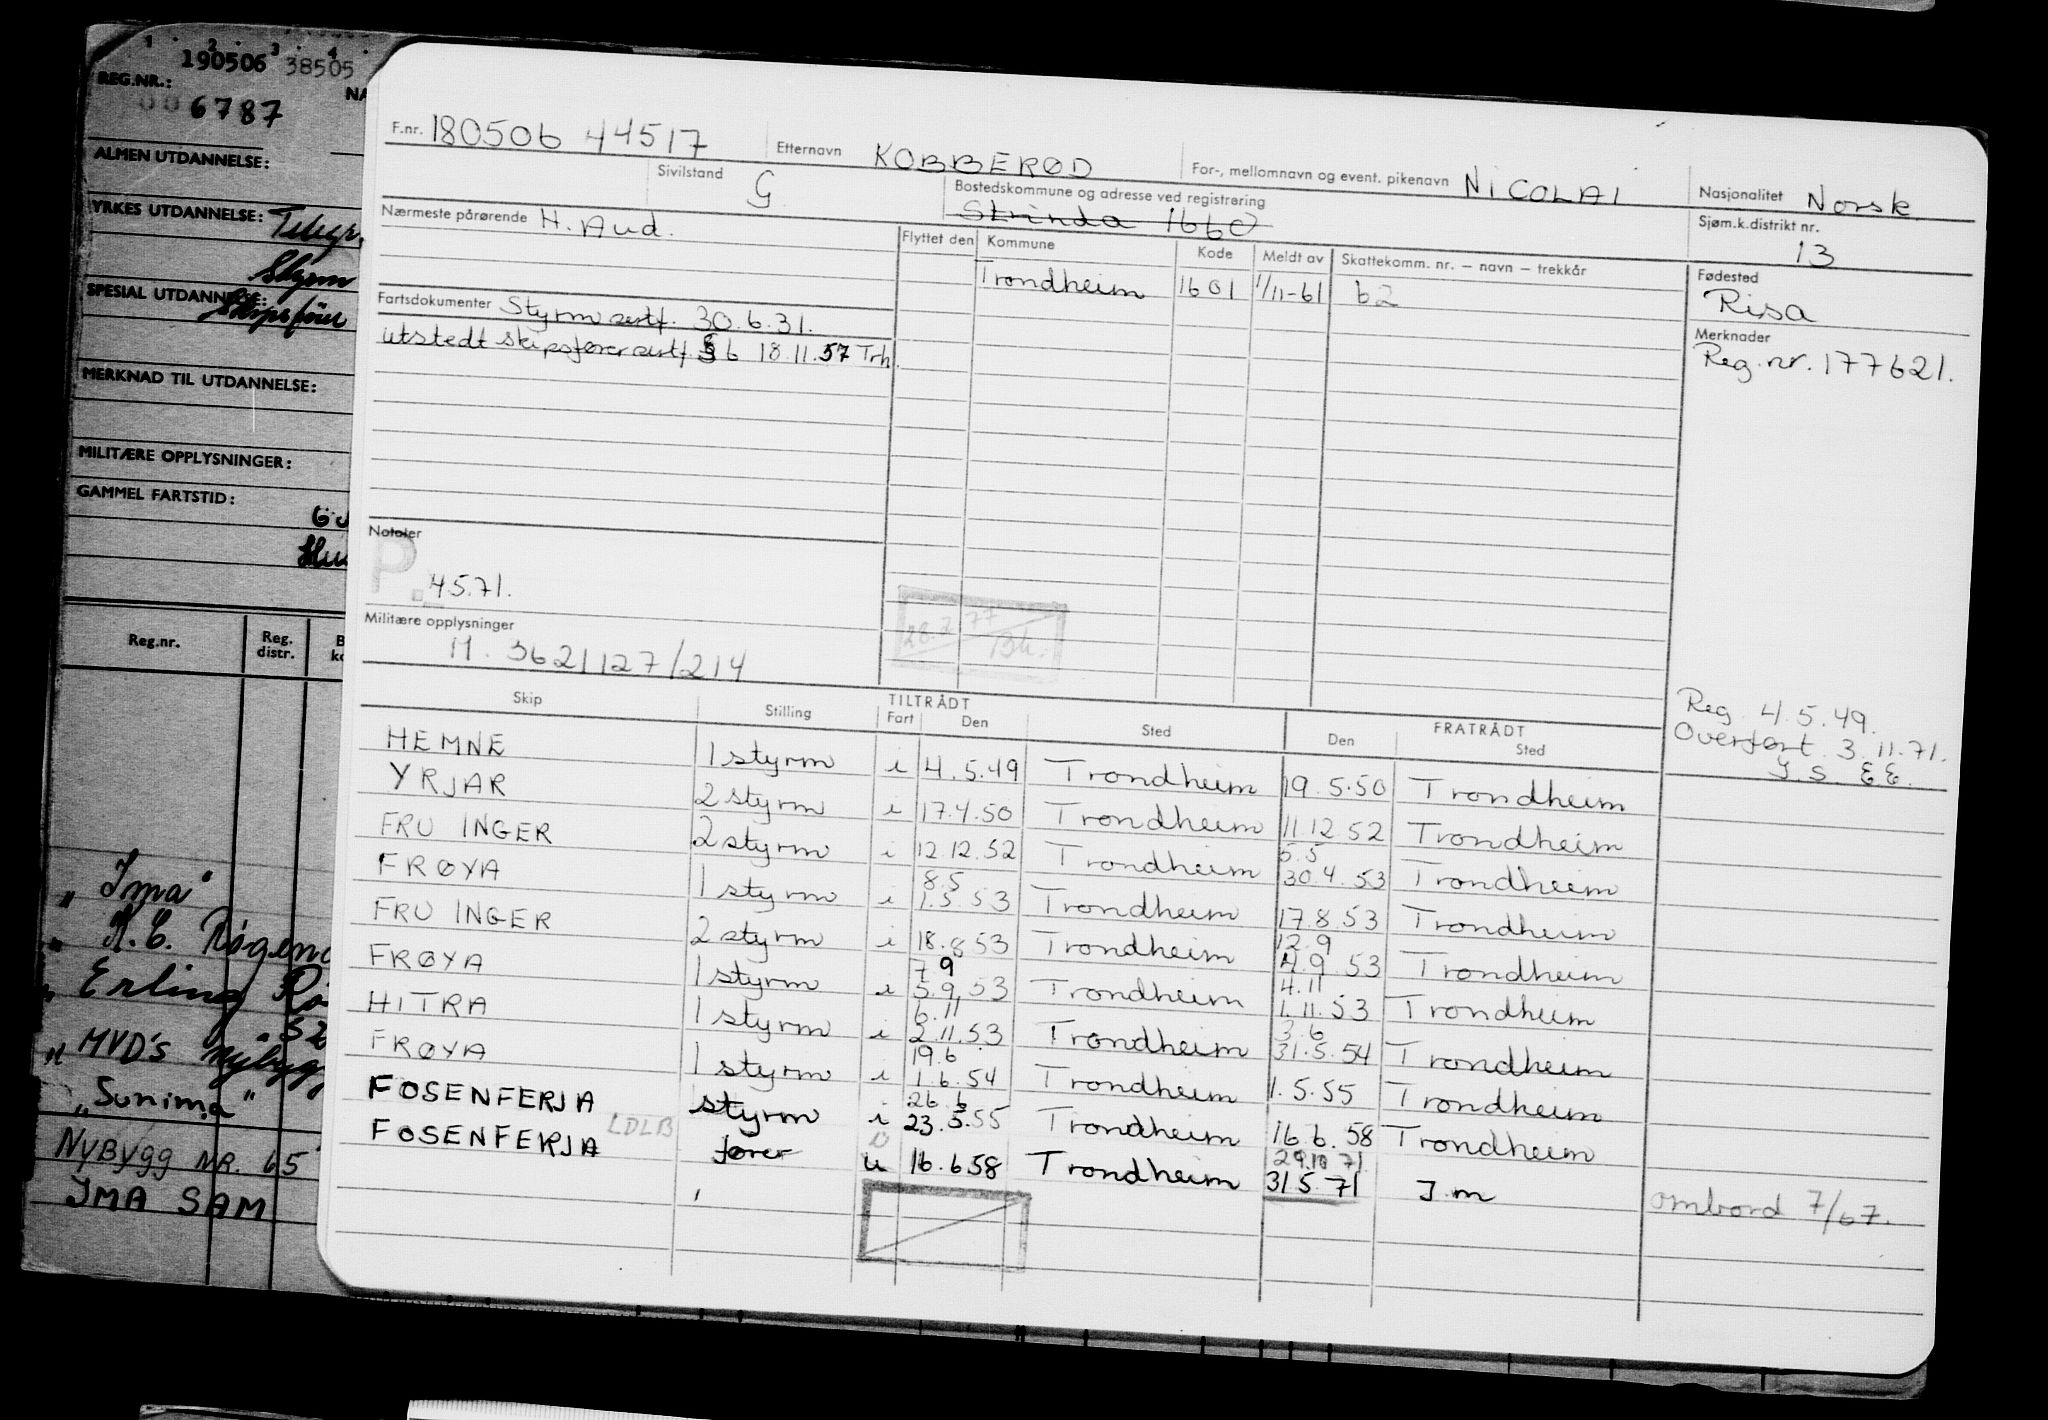 1 2 3 4
190506 38505
REG.NR.:
6787
ALMEN UTDANNELSE:
YRKES UTDANNELSE: Telegr.
Styrm
SPESIAL UTDANNELSE:
Skipsfører
MERKNAD TIL UTDANNELSE:
MILITÆRE OPPLYSNINGER:
GAMMEL FARTSTID:
Reg.nr. Reg. distr.
„ Ima"
" Erling
" MVD's Nybygg
„Sunima"
NYBYGG NR. 65
IMA SAM
F.nr. 180506 44517 Etternavn KOBBERØD For-, mellomnavn og event. pikenavn NICOLAI Nasjonalitet Norsk
Sivilstand G Bostedskommune og adresse ved registrering Strinda 1660 Sjøm.k.distrikt nr. 13
Nærmeste pårørende H. Aud. Flyttet den Kommune Kode Meldt av Skattekomm. nr. – navn – trekkår Fødested
Trondheim 1601 1/11-61 62 Risa
Fartsdokumenter Styrm sertf. 30.6.31. Merknader
utstedt skipsførersertf. 56 18.11.57 Trh. Reg. nr. 177621.
Notater
P.
4.5.71.
28.7.77
Militære opplysninger
M. 3621127/214
Reg. 4.5.49.
Overført. 3.11.71.
I.S. E.E.
TILTRÅDT FRATRÅDT
Skip Stilling Fart Den Sted Den Sted
HEMNE 1 styrm i 4.5.49 Trondheim 19.5.50 Trondheim
YRJAR 2 styrm i 17.4.50 Trondheim 11.12.52 Trondheim
5.5
FRU INGER 2 styrm i 12.12.52 Trondheim 30.4.53 Trondheim
8.5
FRØYA 1 styrm i 1.5.53 Trondheim 17.8.53 Trondheim
12.9
FRU INGER 2 styrm i 18.8.53 Trondheim 4.9.53 Trondheim
7.9 4.11
FRØYA 1 styrm i 5.9.53 Trondheim 1.11.53 Trondheim
6.11 3.6
HITRA 1 styrm i 2.11.53 Trondheim 31.5.54 Trondheim
19.6
FRØYA 1 styrm i 1.6.54 Trondheim 1.5.55 Trondheim
26.6
FOSENFERJA styrm i 23.5.55 Trondheim 16.6.58 Trondheim
LDLB 29.10.71
FOSENFERJA fører u 16.6.58 Trondheim 31.5.71 I.m
ombord 7/67.